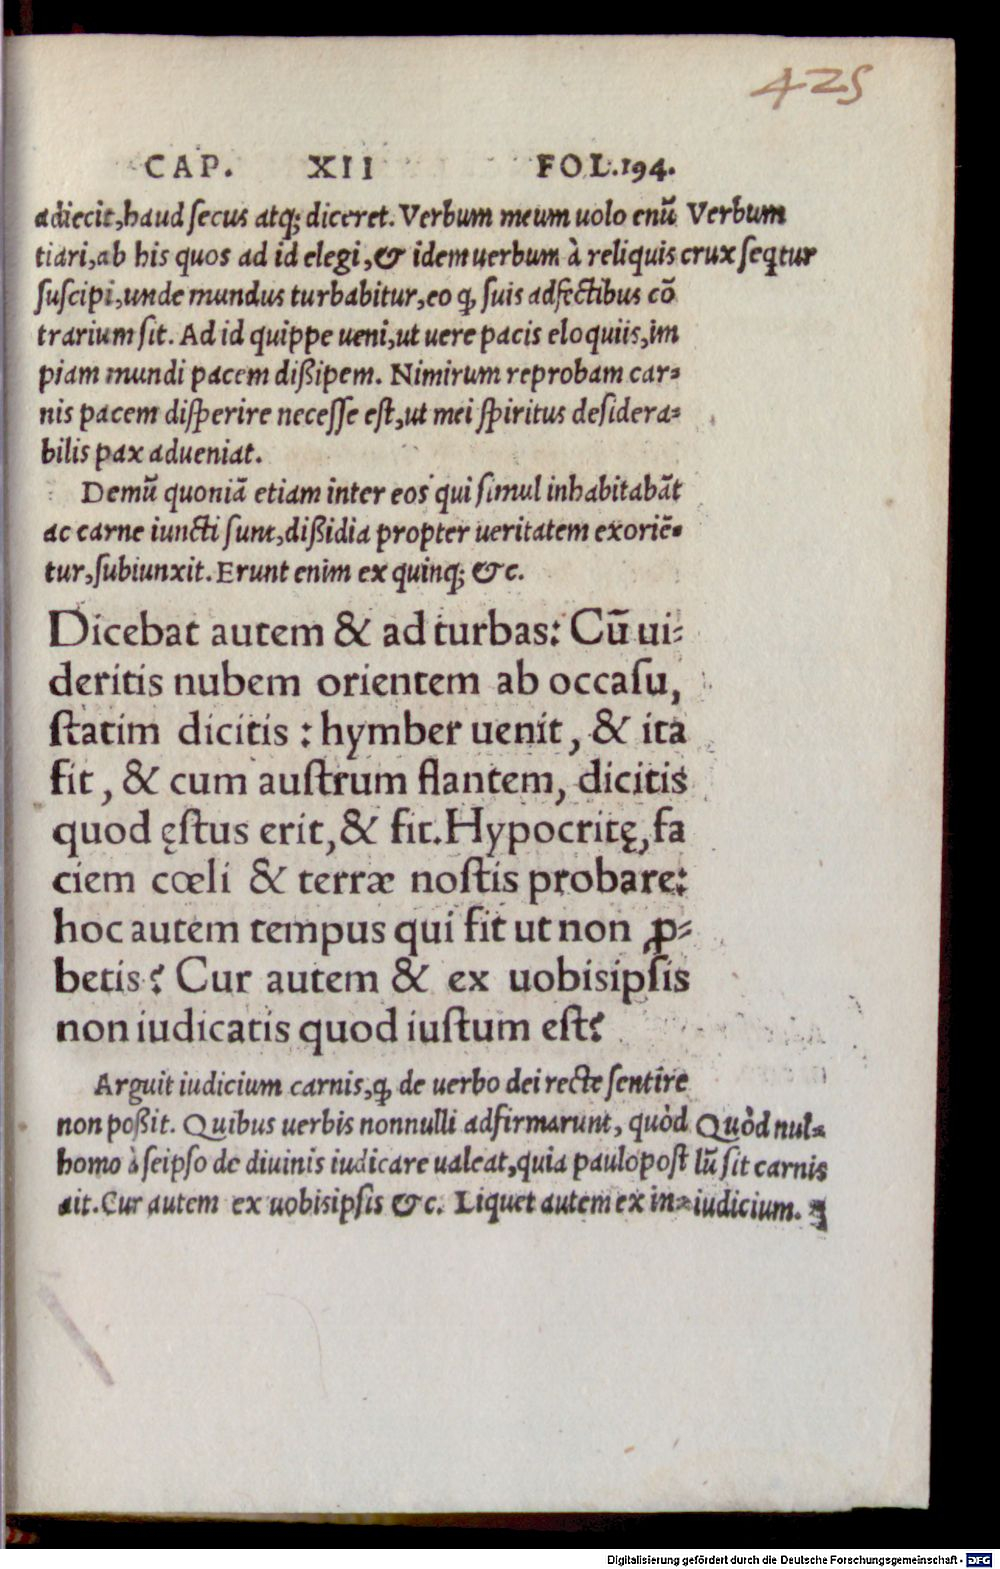 425
CAP. XII FOL.194.
adiecit,haud secus atq; diceret. Verbum meum uolo enũ
tiari,ab his quos ad id elegi,& idem uerbum à reliquis
suscipi,unde mundus turbabitur,eo ꝙ suis adfectibus cõ
trarium sit. Ad id quippe ueni,ut uere pacis eloquiis,im
piam mundi pacem dißipem. Nimirum reprobam car⸗
nis pacem disperire necesse est,ut mei spiritus desidera⸗
bilis pax adueniat.
Verbum
crux seqtur
Demũ quoniã etiam inter eos qui simul inhabitabãt
ac carne iuncti sunt,dißidia propter ueritatem exoriẽ⸗
tur,subiunxit. Erunt enim ex quinq; &c.
Dicebat autem & ad turbas: Cũ ui⸗
deritis nubem orientem ab occasu,
statim dicitis : hymber uenit , & ita
fit , & cum austrum flantem, dicitis
quod ęstus erit,& fit. Hypocritę, fa
ciem cœli & terræ nostis probare:
hoc autem tempus qui fit ut non ꝓ⸗
betis? Cur autem & ex uobisipsis
non iudicatis quod iustum est?
Arguit iudicium carnis,ꝙ de uerbo dei recte sentire
non poßit. Quibus uerbis nonnulli adfirmarunt, quòd
homo à seipso de diuinis iudicare ualeat,quia paulopost
ait. Cur autem ex uobisipsis &c. Liquet autem ex in⸗
Quòd nul⸗
lũ sit carnis
iudicium.
Digitalisierung gefördert durch die Deutsche Forschungsgemeinschaft - DFG